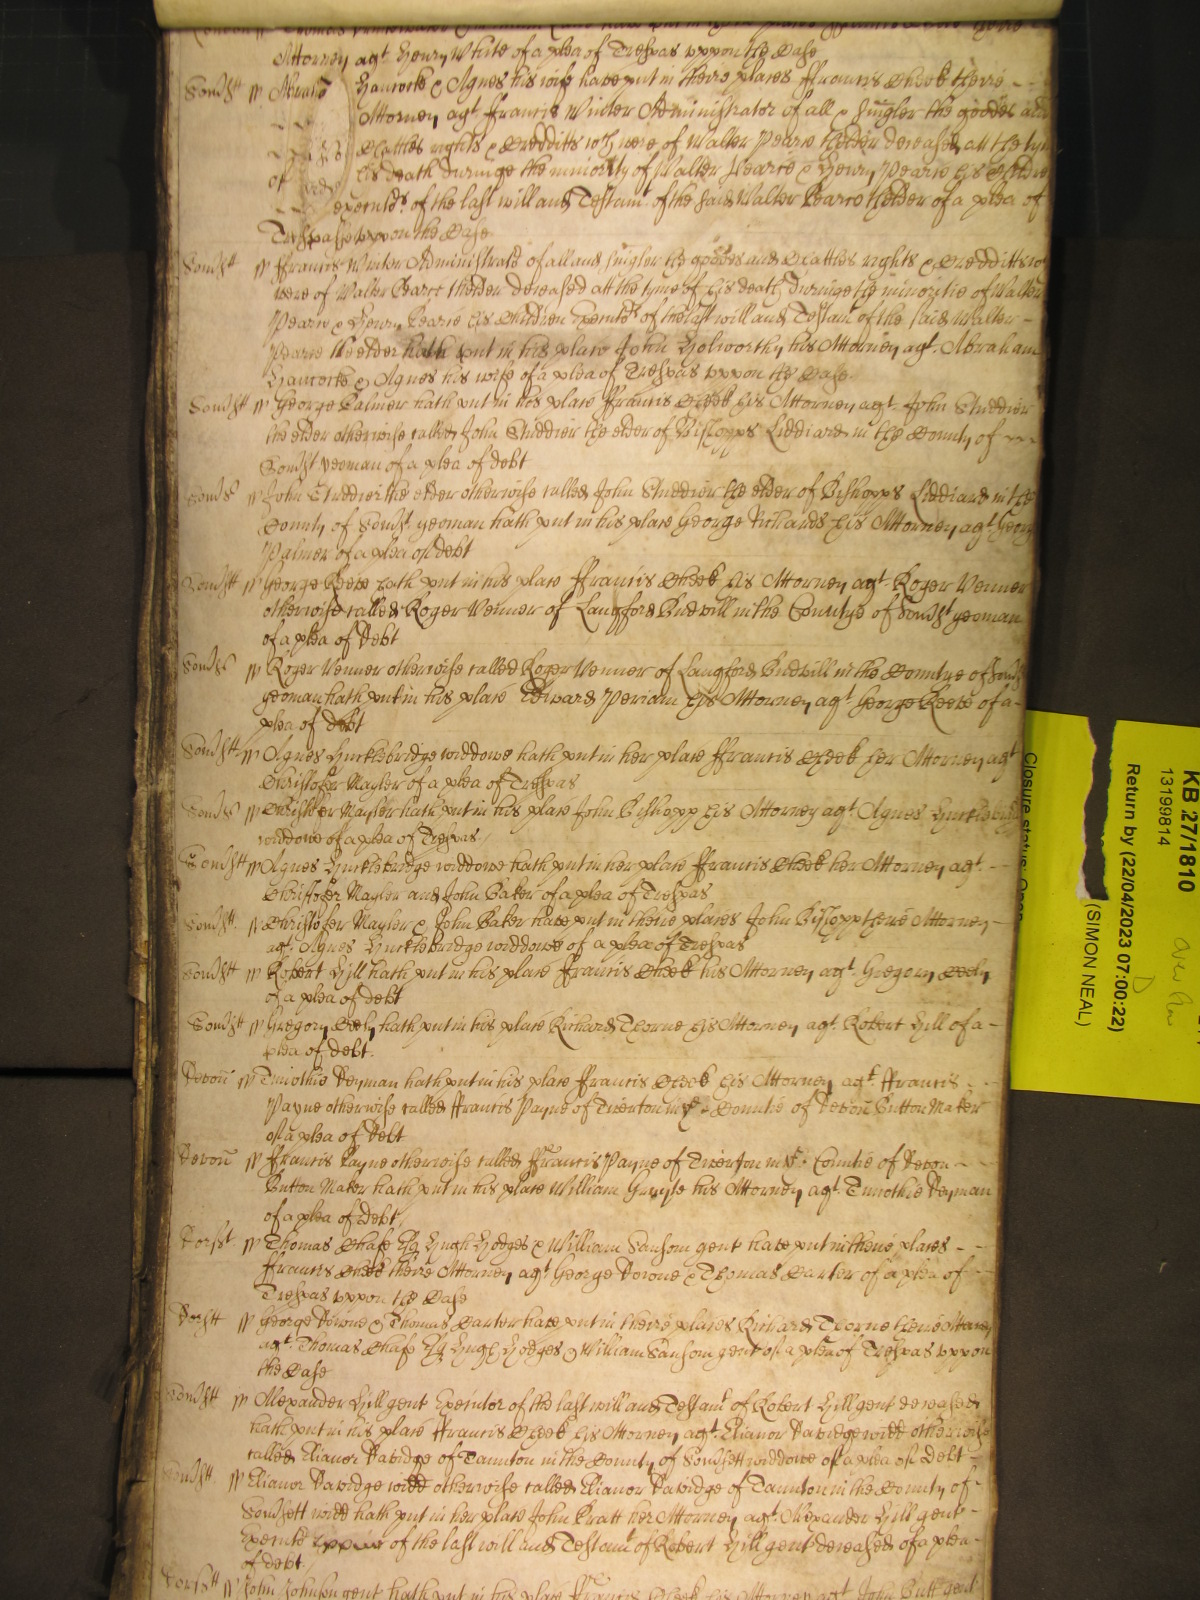 Attorney agt. Henry White of a plea of Trespas uppon the Case
Somst Abraham Hancocke & Agnes his wife have put in theire places ffrancis Cheek theire
Attorney agt. ffrancis Winter Administrator of all & singler the goodes and
Cattles rights & Creditts wch were of Walter Pearce thelder deceased att the tyme
of his death duringe the minority of Walter Pearce & Henry Pearce his Children
executrs. of the last will and Testamt. of the said Walter Pearce thelder of a plea of
Trespasse uppon the Case
Somstt ffrancis Winter Administratr of all and singler the goodes and Cattles rights & Credditts wch
were of Walter Pearce thelder deceased att the tyme of his death duringe the minoritie of Walter
Pearce & Henry Pearce his Children Executrs of the last will and Testamt of the said Walter
Pearce the elder hath put in his place John Holworthy his Attorney agt. Abraham
Hancocke & Agnes his wife of a plea of Trespas uppon the Case
Somstt George Palmer hath put in his place ffrancis Cheek his Attorney agt. John Studdier
the elder otherwise called John Studdier the elder of Bishopps Liddiard in the County of
Somst yeoman of a plea of debt
Somst John Studdier the elder otherwise called John Studdier the elder of Bishopps Liddiard in the
County of Somst. yeoman hath put in his place George Richards his Attorney agt. George
Palmer of a plea of debt
Somstt George Reeve hath put in his place ffrancis Cheek his Attorney agt. Roger Venner
otherwise called Roger Venner of Langford Budvill in the Countye of Somst yeoman
of a plea of Debt
Somst Roger Venner otherwise called Roger Venner of Langford Budvill in the Countye of Somst
yeoman hath put in his place Edward Periam his Attorney agt George Reeve of a
plea of debt
Somstt Agnes Hucklebridge widdowe hath put in her place ffrancis Cheek her Attorney agt
Christofer Mayler of a plea of Trespas
Somst Christofer Mayler hath put in his place John Bishopp his Attorney agt. Agnes Hucklebridge
widdowe of a plea of Trespas
Somstt Agnes Hucklebridge widdowe hath put in her place ffrancis Cheek her Attorney agt.
Christofer Mayler and John Baker of a plea of Trespas
Somstt. Christofer Mayler & John Baker have put in theire places John Bishopp theire Attorney
agt. Agnes Hucklebridge widdowe of a plea of Trespas
Somstt Robert Hill hath put in his place ffrancis Cheek his Attorney agt. Gregory Cely
of a plea of debt
Somstt Gregory Cely hath put in his place Richard Thorne his Attorney agt. Robert Hill of a
plea of debt.
Devon Timothie Deyman hath put in his place ffrancis Cheek his Attorney agt. ffrancis
Payne otherwise called ffrancis Payne of Tiverton in ye Countie of Devon Button Maker
of a plea of Debt
Devon ffrancis Payne otherwise called ffrancis Payne of Tiverton in ye Countie of Devon
Button Maker hath put in his place William his Attorney agt. Timothie Deyman
of a plea of Debt.
Dorst. Thomas Chafe Esq Hugh Hodges & William Sansom gent have put in theire places
ffrancis Cheek theire Attorney agt George Devone & Thomas Carter of a plea of
Trespas uppon the Case
Dorstt George Devone & Thomas Carter have put in theire places Richard Thorne theire Attorney
agt. Thomas Chafe Esq Hugh Hodges & William Sansom gent of a plea of Trespas uppon
the Case
Somstt Alexander Hill gent Executor of the last will and Testamt of Robert Hill gent deceased
hath put in his place ffrancis Cheek his Attorney agt. Elianor Davidge widd otherwise
called Elianor Davidge of Taunton in the County of Somsett widdowe of a plea of Debt
Somstt Elianor Davidge widd otherwise called Elianor Davidge of Taunton in the County of
Somsett widd hath put in her place John Pratt her Attorney agt. Alexander Hill gent
Executr of the last will and Testamt of Robert Hill gent deceased of a plea
of debt.
Dorstt John Johnson gent hath put in his place ffrancis Cheek his Attorney agt John Butt gent
KB 27/1810
13199814
Return by (22/04/2023 07:00:22)
(SIMON NEAL)
Closure status: Open